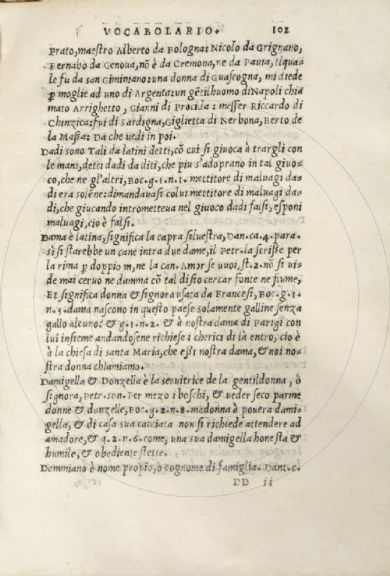 VOCABOLARIO. 102
Prato, maestro Alberto da Bologna: Nicolo da Grignano,
Bernabo da Genoua, nõ è da Cremona, ne da Pauia, il qua
le fu da san Gimimano: una donna di Guascogna, mi diede
ꝑ moglie ad uno di Argenta: un gẽtilhuomo di Napoli chia
mato Arrighetto, Gianni di Procida: messer Riccardo di
Chinzica: fui di Sardigna, Giglietta di Nerbona, Berto de
la Massa: Da che uedi in poi.
Dadi sono Tali da latini detti, cõ cui si giuoca à trargli con
le mani, detti dadi da diti, che piu s'adoprano in tal giuo-
co, che ne gl'altri, Boc. g. 1. n. 1. mettitore di maluagi da-
di era solẽne: dimandauasi colui mettitore di maluagi da-
di, che giucando intrometteua nel giuoco dadi falsi, esponi
maluagi, cio è falsi.
Dama è latina, significa la capra siluestra, Dan. ca. 4. para.
si si starebbe un cane intra due dame, il Petr. la scrisse per
la rima ꝑ doppio m, ne la can. Amor se uuoi, st. 2. nõ si ui-
de mai ceruo ne damma cõ tal disio cercar fonte ne fiume,
Et significa donna & signora usata da Francesi, Boc. g. 1.
n. 5. dama nascono in questo paese solamente galline senza
gallo alcuno? & g. 1. n. 2. & à nostra dama di Parigi con
lui insieme andandosene richiese i cherici di la entro, cio è
à la chiesa di santa Maria, che essi nostra dama, & noi no-
stra donna chiamamo.
Damigella & Donzella è la seruitrice de la gentildonna, ò
signora, Petr. son. Per mezo i boschi, & ueder seco parme
donne & donzelle, Boc. g. 2. n. 8. madonna è pouera dami-
gella, & di casa sua cacciata non si richiede attendere ad
amadore, & g. 2. n. 6. come, una sua damigella honesta &
humile, & obediente stette.
Dammiano è nome proprio, ò cognome di famiglia. Dant. c.
DD ii